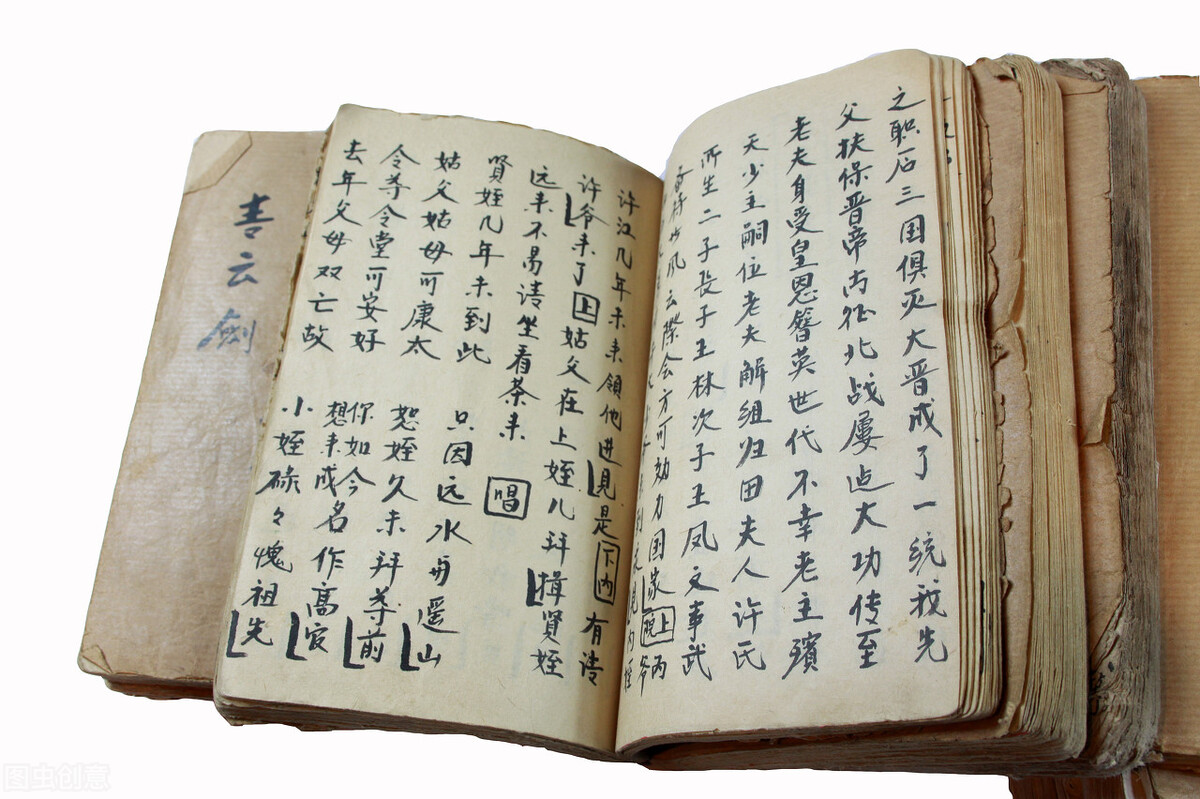 之职后三国俱灭大晋成了一统我先
父扶保晋帝南征北战屡迠大功传至
老夫身受皇恩簪英世代不幸老主殡
天少主嗣位老夫解组归田夫人许氏
所生二子长子王林次子王凤文事武
风云际会方可効力国家上
许江几年未来領他进見是下内有请
许爷来了上姑父在上姪儿拜揖贤姪
远来不易请坐看茶来
賢姪几年未到此唱
姑父姑母可康太只因远水舟遥山
令尊令堂可安好恕姪久未拜尊前
去年父母双亡故你如今想来成名作高官
小姪碌々愧祖先
云劍
图虫创意